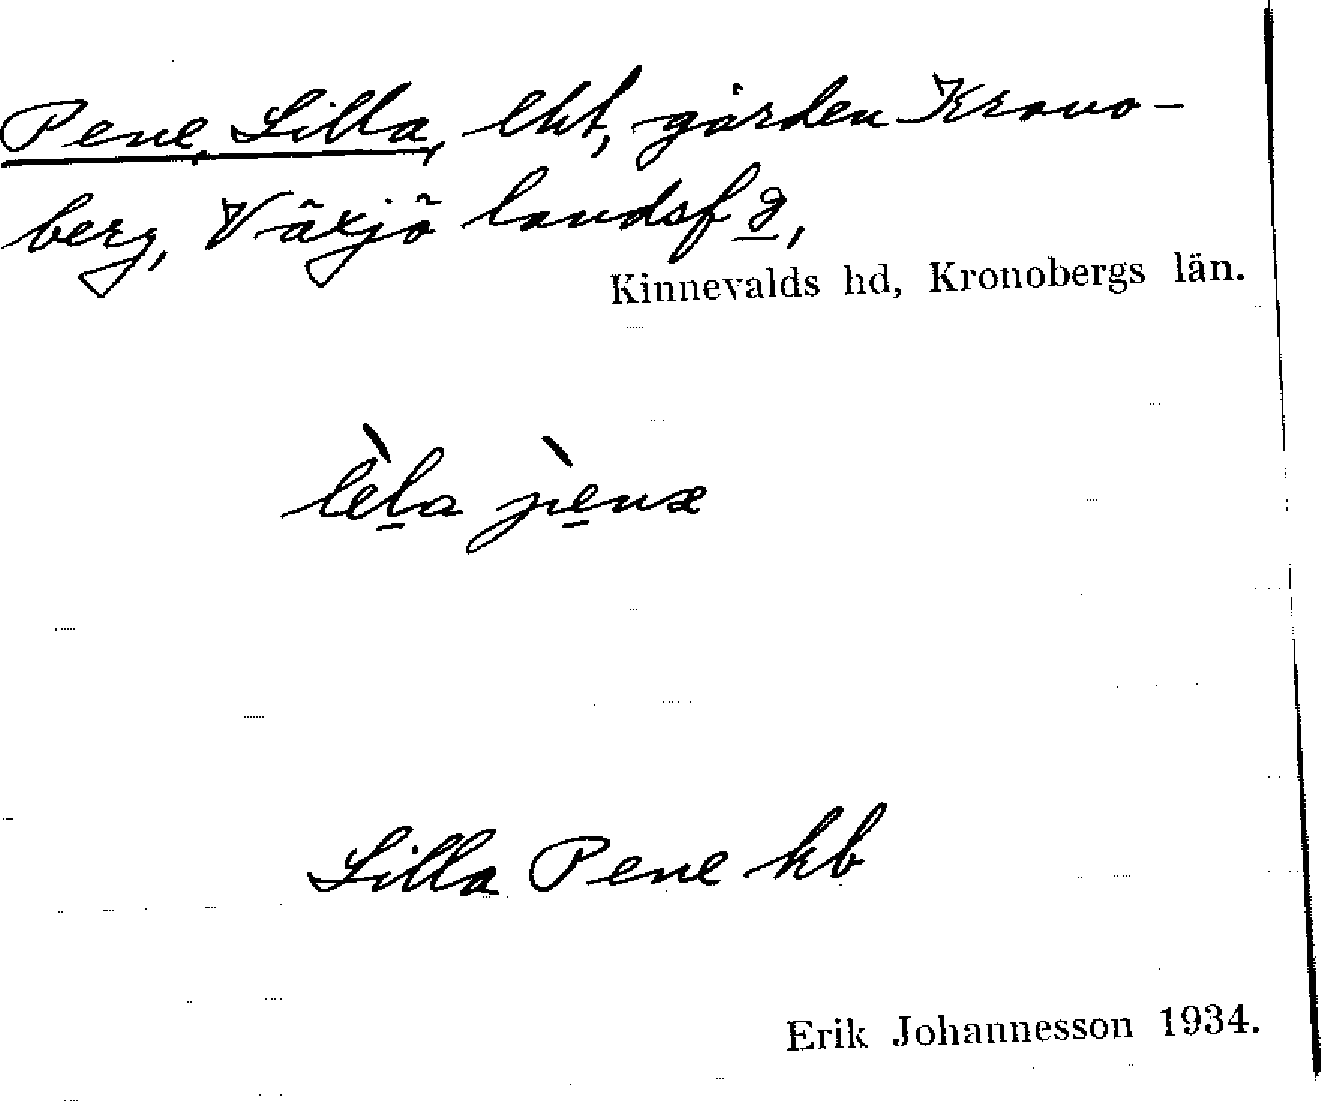 Pene, Lilla, lht, gården Krono-
berg, Växjö landsfg,
Kinnevalds hd, Kronobergs län.
lèla
Lilla Pene kb
Erik Johannesson 1934.